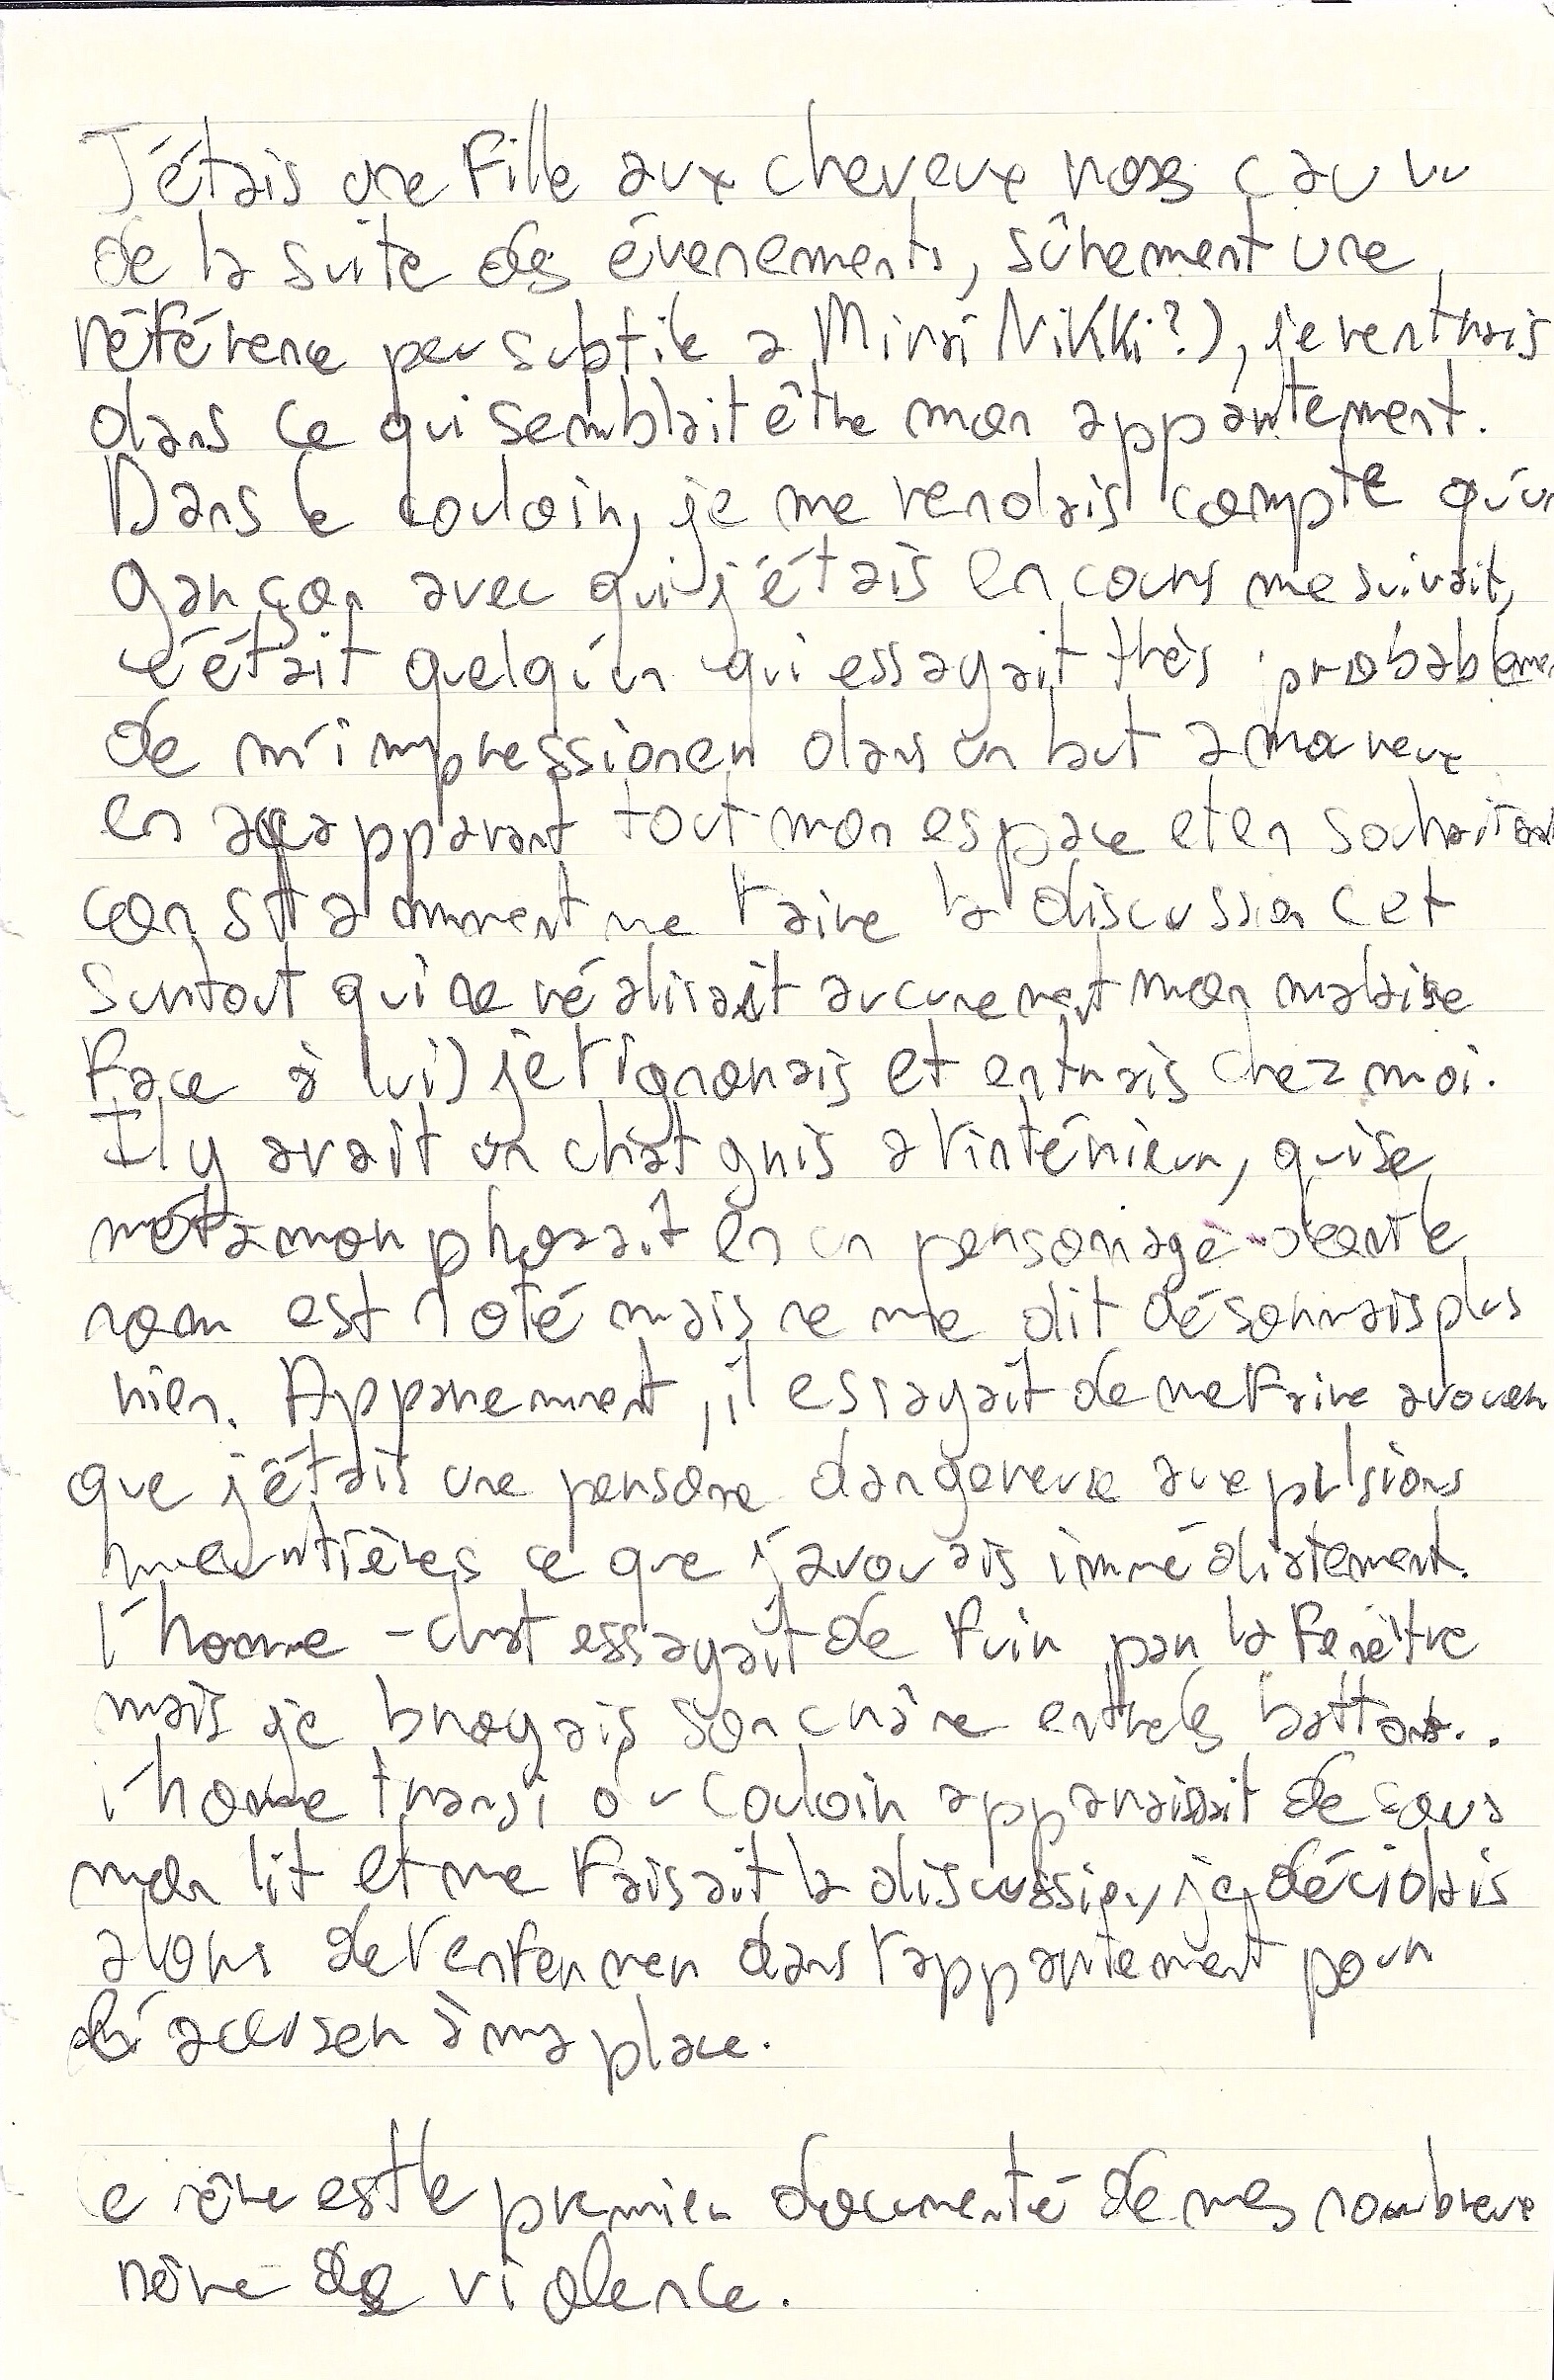 J'étais une fille aux cheveux roses (au vu
de la suite des évenements, sûrement une
référence peu subtile a Mirai Nikki?), je rentrais
dans ce qui semblait être mon appartement.
Dans le couloir, je me rendais compte qu'un
garçon avec qui j'étais en cours me suivait,
c'était quelqu'un qui essayait très probableme
de m'impressioner dans un but amoureux
en accapparant tout mon espace et en souhaitant
constamment me faire la discussion (et
surtout qui ne réalisait aucunement mon malaise
face à lui) je l'ignorais et entrais chez moi.
Il y avait un chat gris a l'intérieur, qui se
métamorphosait en un personage dont le
nom est noté mais ne me dit désormais plus
rien. Apparemment, il essayait de me faire avouer
que j'étais une personne dangereuse aux pulsions
meurtières ce que j'avouais immédiatement.
l'homme-chat essayait de fuir par la fenêtre
mais je broyais son crâne entre les battants..
l'homme transi du couloir apparaissait de sous
mon lit et me faisait la discussion, je décidais
alors de l'enfermer dans l'appartement pour
l'accuser à ma place.
Ce rêve est le premier documenté de mes nombreux
rêve de violence.